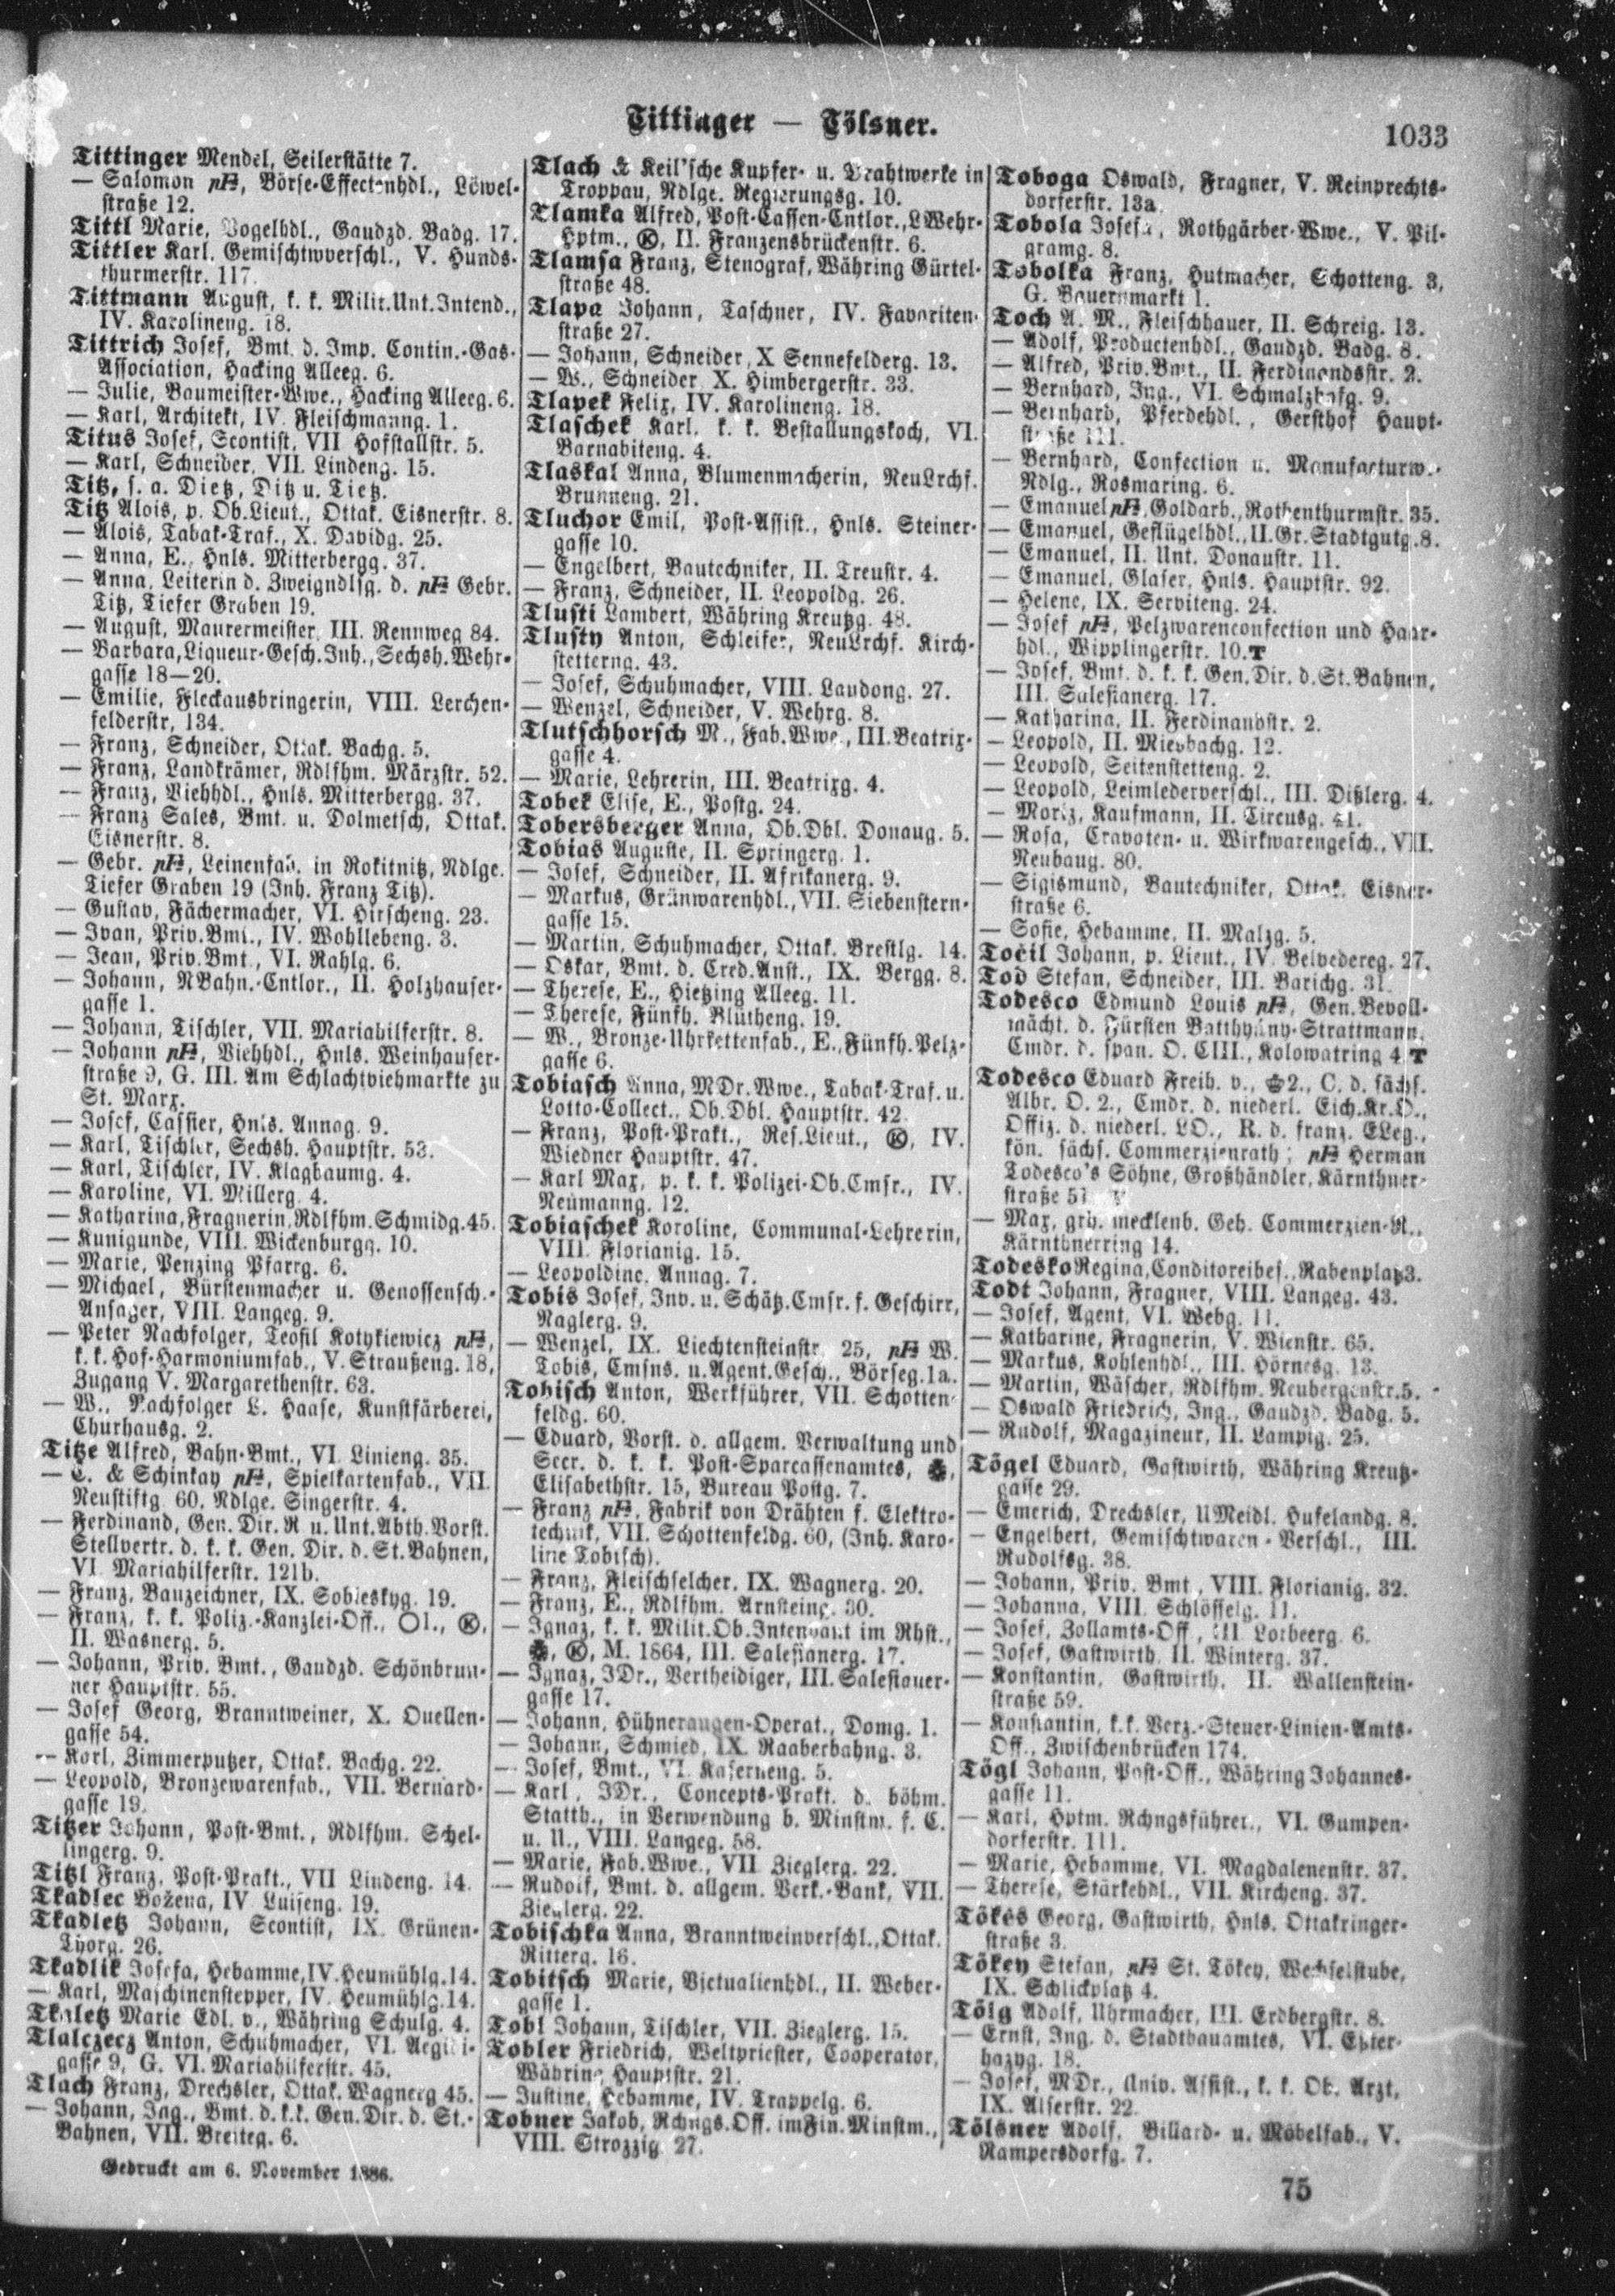 Tittinger — Tölsner.
1033
Tittinger Mendel, Seilerstätte 7.
— Salomon pH, Börse-Effectenhdl., Löwel-
straße 12.
Tittl Marie, Vogelhdl., Gaudzd. Badg. 17.
Tittler Karl, Gemischtwverschl., V. Hunds-
thurmerstr. 117.
Tittmann August, k. k. Milit.Unt.Intend.,
IV. Karolineng. 18.
Tittrich Josef, Bmt. d. Imp. Contin.-Gas-
Association, Hacking Alleeg. 6.
— Julie, Baumeister-Wwe., Hacking Alleeg. 6.
— Karl, Architekt, IV. Fleischmanng. 1.
Titus Josef, Scontist, VII Hofstallstr. 5.
— Karl, Schneider, VII. Lindeng. 15.
Titz, s. a. Dietz, Ditz u. Tietz.
Titz Alois, p. Ob.Lieut., Ottak. Eisnerstr. 8.
— Alois, Tabak-Traf., X. Davidg. 25.
— Anna, E., Hnls. Mitterbergg. 37.
— Anna, Leiterin d. Zweigndlsg. d. pH Gebr.
Titz, Tiefer Graben 19.
— August, Maurermeister, III. Rennweg 84.
— Barbara, Liqueur-Gesch.Inh., Sechsh. Wehr-
gasse 18—20.
— Emilie, Fleckausbringerin, VIII. Lerchen-
felderstr. 134.
— Franz, Schneider, Ottak. Bachg. 5.
— Franz, Landkrämer, Rdlfhm. Märzstr. 52.
— Franz, Viehhdl., Hnls. Mitterbergg. 37.
— Franz Sales, Bmt. u. Dolmetsch, Ottak.
Eisnerstr. 8.
— Gebr. pH, Leinenfab. in Rokitnitz, Ndlge.
Tiefer Graben 19 (Inh. Franz Titz).
— Gustav, Fächermacher, VI. Hirscheng. 23.
— Ivan, Priv.Bmt., IV. Wohllebeng. 3.
— Jean, Priv.Bmt., VI. Rahlg. 6.
— Johann, NBahn.-Cntlor., II. Holzhauser-
gasse 1.
— Johann, Tischler, VII. Mariahilferstr. 8.
— Johann pH, Viehhdl., Hnls. Weinhauser-
straße 9, G. III. Am Schlachtviehmarkte zu
St. Marx.
— Josef, Cassier, Hnls. Annag. 9.
— Karl, Tischler, Sechsh. Hauptstr. 53.
— Karl, Tischler, IV. Klagbaumg. 4.
— Karoline, VI. Millerg. 4.
— Katharina, Fragnerin, Rdlfhm. Schmidg. 45.
— Kunigunde, VIII. Wickenburgg. 10.
— Marie, Penzing Pfarrg. 6.
— Michael, Bürstenmacher u. Genossensch.-
Ansager, VIII. Langeg. 9.
— Peter Nachfolger, Teofil Kotykiewicz pH,
k. k. Hof-Harmoniumfab., V. Straußeng. 18,
Zugang V. Margarethenstr. 63.
— W., Nachfolger L. Haase, Kunstfärberei,
Churhausg. 2.
Titze Alfred, Bahn-Bmt., VI. Linieng. 35.
— C. & Schinkay pH, Spielkartenfab., VII.
Neustiftg. 60, Ndlge. Singerstr. 4.
— Ferdinand, Gen. Dir. R u. Unt.Abth.Vorst.
Stellvertr. d. k. k. Gen. Dir. d. St.Bahnen,
VI. Mariahilferstr. 121b.
— Franz, Bauzeichner, IX. Sobieskyg. 19.
— Franz, k. k. Poliz.-Kanzlei-Off., O1., Ⓚ,
II. Wasnerg. 5.
— Johann, Priv. Bmt., Gaudzd. Schönbrun-
ner Hauptstr. 55.
— Josef Georg, Branntweiner, X. Quellen-
gasse 54.
— Karl, Zimmerputzer, Ottak. Bachg. 22.
— Leopold, Bronzewarenfab., VII. Bernard-
gasse 19.
Titzer Johann, Post-Bmt., Rdlfhm. Schel-
lingerg. 9.
Titzl Franz, Post-Prakt., VII Lindeng. 14.
Tkadlec Božena, IV Luiseng. 19.
Tkadletz Johann, Scontist, IX. Grünen-
Thorg. 26.
Tkadlik Josefa, Hebamme, IV. Heumühlg. 14.
— Karl, Maschinenstepper, IV. Heumühlg. 14.
Tkaletz Marie Edl. v., Währing Schulg. 4.
Tlalczecz Anton, Schuhmacher, VI. Aegidi-
gasse 9, G. VI. Mariahilferstr. 45.
Tlach Franz, Drechsler, Ottak. Wagnerg 45.
— Johann, Ing., Bmt. d. k.k. Gen.Dir. d. St.-
Bahnen, VII. Breiteg. 6.
Gedruckt am 6. November 1886.
Tlach & Keil'sche Kupfer- u. Drahtwerke in
Troppau, Ndlge. Regierungsg. 10.
Tlamka Alfred, Post-Cassen-Cntlor., LWehr-
Hptm., Ⓚ, II. Franzensbrückenstr. 6.
Tlamsa Franz, Stenograf, Währing Gürtel-
straße 48.
Tlapa Johann, Taschner, IV. Favoriten-
straße 27.
— Johann, Schneider, X Sennefelderg. 13.
— W., Schneider, X. Himbergerstr. 33.
Tlapek Felix, IV. Karolineng. 18.
Tlaschek Karl, k. k. Bestallungskoch, VI.
Barnabiteng. 4.
Tlaskal Anna, Blumenmacherin, NeuLrchf.
Brunneng. 21.
Tluchor Emil, Post-Assist., Hnls. Steiner-
gasse 10.
— Engelbert, Bautechniker, II. Treustr. 4.
— Franz, Schneider, II. Leopoldg. 26.
Tlusti Lambert, Währing Kreutzg. 48.
Tlusty Anton, Schleifer, NeuLrchf. Kirch-
stetterng. 43.
— Josef, Schuhmacher, VIII. Laudong. 27.
— Wenzel, Schneider, V. Wehrg. 8.
Tlutschhorsch M., Fab.Wwe., III. Beatrix-
gasse 4.
— Marie, Lehrerin, III. Beatrixg. 4.
Tobek Elise, E., Postg. 24.
Tobersberger Anna, Ob.Dbl. Donaug. 5.
Tobias Auguste, II. Springerg. 1.
— Josef, Schneider, II. Afrikanerg. 9.
— Markus, Grünwarenhdl., VII. Siebenstern-
gasse 15.
— Martin, Schuhmacher, Ottak. Brestlg. 14.
— Oskar, Bmt. d. Cred.Anst., IX. Bergg. 8.
— Therese, E., Hietzing Alleeg. 11.
— Therese, Fünfh. Blütheng. 19.
— W., Bronze-Uhrkettenfab., E., Fünfh. Pelz-
gasse 6.
Tobiasch Anna, MDr.Wwe., Tabak-Traf. u.
Lotto-Collect., Ob.Dbl. Hauptstr. 42.
— Franz, Post-Prakt., Res.Lieut., Ⓚ, IV.
Wiedner Hauptstr. 47.
— Karl Max, p. k. k. Polizei-Ob.Cmsr., IV.
Neumanng. 12.
Tobiaschek Karoline, Communal-Lehrerin,
VIII. Florianig. 15.
— Leopoldine, Annag. 7.
Tobis Josef, Inv. u. Schätz.Cmsr. f. Geschirr,
Naglerg. 9.
— Wenzel, IX. Liechtensteinstr. 25, pH W.
Tobis, Cmsns. u. Agent.Gesch., Börseg. 1a.
Tobisch Anton, Werkführer, VII. Schotten-
feldg. 60.
— Eduard, Vorst. d. allgem. Verwaltung und
Secr. d. k. k. Post-Sparcassenamtes,
Elisabethstr. 15, Bureau Postg. 7.
— Franz pH, Fabrik von Drähten f. Elektro-
technik, VII. Schottenfeldg. 60, (Inh. Karo-
line Tobisch).
— Franz, Fleischselcher, IX. Wagnerg. 20.
— Franz, E., Rdlfhm. Arnsteing. 30.
— Ignaz, k. k. Milit.Ob.Intendant im Rhst.,
Ⓚ, M. 1864, III. Salesianerg. 17.
— Ignaz, JDr., Vertheidiger, III. Salesianer-
gasse 17.
— Johann, Hühneraugen-Operat., Domg. 1.
— Johann, Schmied, IX. Raaberbahng. 3.
— Josef, Bmt., VI. Kaserneng. 5.
— Karl, JDr., Concepts-Prakt. d. böhm.
Statth., in Verwendung b. Minstm. f. C.
u. U., VIII. Langeg. 58.
— Marie, Fab.Wwe., VII Zieglerg. 22.
— Rudolf, Bmt. d. allgem. Verk.-Bank, VII.
Zieglerg. 22.
Tobischka Anna, Branntweinverschl., Ottak.
Ritterg. 16.
Tobitsch Marie, Victualienhdl., II. Weber-
gasse 1.
Tobl Johann, Tischler, VII. Zieglerg. 15.
Tobler Friedrich, Weltpriester, Cooperator,
Währing Hauptstr. 21.
— Justine, Hebamme, IV. Trappelg. 6.
Tobner Jakob, Rchngs.Off. im Fin.Minstm.,
VIII. Strozzig. 27.
Toboga Oswald, Fragner, V. Reinprechts-
dorferstr. 13a.
Tobola Josefa, Rothgärber-Wwe., V. Pil-
gramg. 8.
Tobolka Franz, Hutmacher, Schotteng. 3,
G. Bauernmarkt 1.
Toch A. M., Fleischhauer, II. Schreig. 13.
— Adolf, Productenhdl., Gaudzd. Badg. 8.
— Alfred, Priv.Bmt., II. Ferdinandsstr. 2.
— Bernhard, Ing., VI. Schmalzhofg. 9.
— Bernhard, Pferdehdl., Gersthof Haupt-
straße 111.
— Bernhard, Confection u. Manufacturw.-
Ndlg., Rosmaring. 6.
— Emanuel pH, Goldarb., Rothenthurmstr. 35.
— Emanuel, Geflügelhdl., II. Gr. Stadtgutg. 8.
— Emanuel, II. Unt. Donaustr. 11.
— Emanuel, Glaser, Hnls. Hauptstr. 92.
— Helene, IX. Serviteng. 24.
— Josef pH, Pelzwarenconfection und Haar-
hdl., Wipplingerstr. 10. T
— Josef, Bmt. d. k. k. Gen.Dir. d. St.Bahnen,
III. Salesianerg. 17.
— Katharina, II. Ferdinandstr. 2.
— Leopold, II. Miesbachg. 12.
— Leopold, Seitenstetteng. 2.
— Leopold, Leimlederverschl., III. Dißlerg. 4.
— Moriz, Kaufmann, II. Circusg. 41.
— Rosa, Cravaten- u. Wirkwarengesch., VII.
Neubaug. 80.
— Sigismund, Bautechniker, Ottak. Eisner-
straße 6.
— Sofie, Hebamme, II. Malzg. 5.
Točil Johann, p. Lieut., IV. Belvedereg. 27.
Tod Stefan, Schneider, III. Barichg. 31.
Todesco Edmund Louis pH, Gen.Bevoll-
mächt. d. Fürsten Batthyány-Strattmann,
Cmdr. d. span. O. CIII., Kolowatring 4 T
Todesco Eduard Freih. v., 2., C. d. sächs.
Albr. O. 2., Cmdr. d. niederl. Eich.Kr.O.,
Offiz. d. niederl. LO., R. d. franz. ELeg.,
kön. sächs. Commerzienrath; pH Herman
Todesco's Söhne, Großhändler, Kärnthner-
straße 51
— Max, grh. mecklenb. Geh. Commerzien-R.,
Kärnthnerring 14.
Todesko Regina, Conditoreibes., Rabenplatz 3.
Todt Johann, Fragner, VIII. Langeg. 43.
— Josef, Agent, VI. Webg. 11.
— Katharine, Fragnerin, V. Wienstr. 65.
— Markus, Kohlenhdl., III. Hörnesg. 13.
— Martin, Wäscher, Rdlfhm. Neubergenstr. 5.
— Oswald Friedrich, Ing., Gaudzd. Badg. 5.
— Rudolf, Magazineur, II. Lampig. 25.
Tögel Eduard, Gastwirth, Währing Kreutz-
gasse 29.
— Emerich, Drechsler, UMeidl. Hufelandg. 8.
— Engelbert, Gemischtwaren-Verschl., III.
Rudolfsg. 38.
— Johann, Priv. Bmt., VIII. Florianig. 32.
— Johanna, VIII. Schlösselg. 11.
— Josef, Zollamts-Off., III. Lorbeerg. 6.
— Josef, Gastwirth, II. Winterg. 37.
— Konstantin, Gastwirth, II. Wallenstein-
straße 59.
— Konstantin, k.k. Verz.-Steuer-Linien-Amts-
Off., Zwischenbrücken 174.
Tögl Johann, Post-Off., Währing Johannes-
gasse 11.
— Karl, Hptm. Rchngsführer., VI. Gumpen-
dorferstr. 111.
— Marie, Hebamme, VI. Magdalenenstr. 37.
— Therese, Stärkehdl., VII. Kircheng. 37.
Tökés Georg, Gastwirth, Hnls. Ottakringer-
straße 3.
Tökey Stefan, pH St. Tökey, Wechselstube,
IX. Schlickplatz 4.
Tölg Adolf, Uhrmacher, III. Erdbergstr. 8.
— Ernst, Ing. d. Stadtbauamtes, VI. Eszter-
hazyg. 18.
— Josef, MDr., Univ. Assist., k. k. Ob. Arzt,
IX. Alserstr. 22.
Tölsner Adolf, Billard- u. Möbelfab., V.
Rampersdorfg. 7.
75